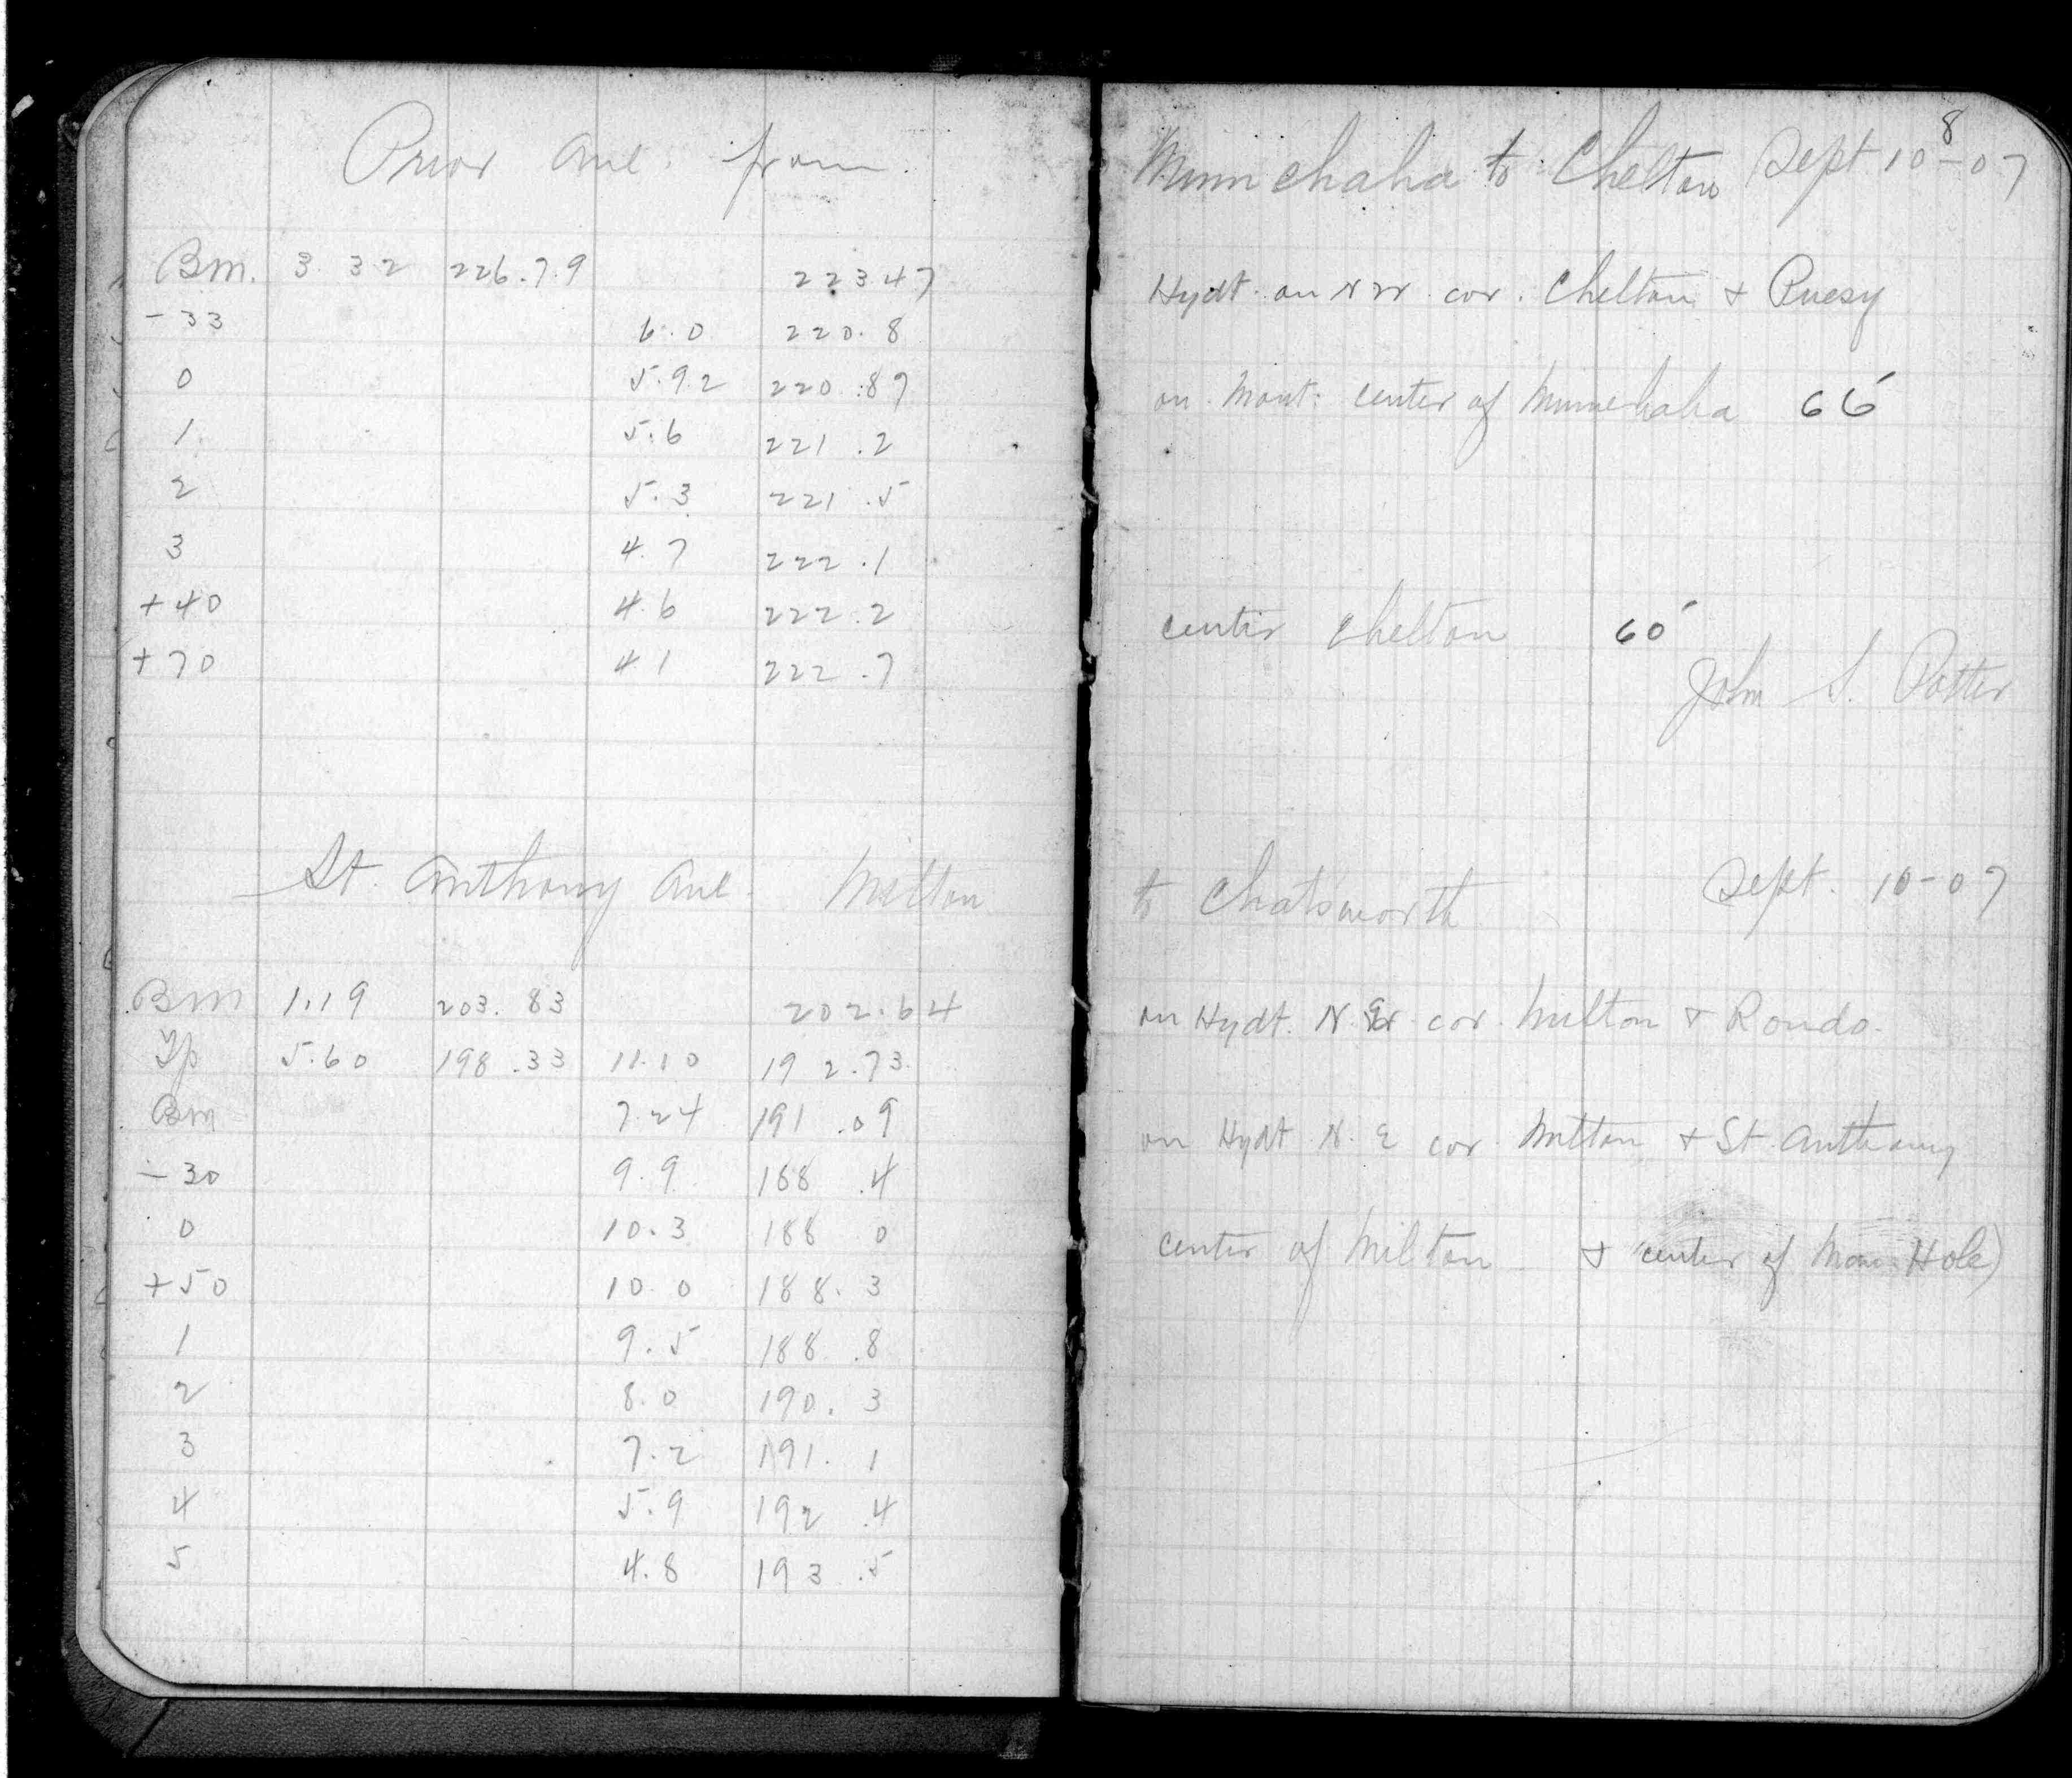 8
Prior Ave. from Minnehaha to Chelton Sept 10-07
Bm. 3.32 226.79 22347 Hydt. on NW. cor. Chelton + Puesy
-33 6.0 220.8
0 5.92 220.87 on Mont. center of Minnehaha 66'
1 5.6 221.2
2 5.3 221.5
3 4.7 222.1
+40 4.6 222.2 center Chelton 60'
+70 41 222.7 John S. Potter
St. Anthony Ave. Milton to Chatsworth Sept. 10-07
Bm 1.19 203.83 202.64 on Hydt. N. cor. Milton + Rondo.
Tp 5.60 198.33 11.10 192.73
Bm 7.24 191.09 on Hydt N. E cor. Milton + St. Anthony
-30 9.9 188.4
0 10.3 188 0 center of Milton + (center of Man Hole)
+50 10.0 188.3
1 9.5 188.8
2 8.0 190.3
3 7.2 191.1
4 5.9 192.4
5 4.8 193.5